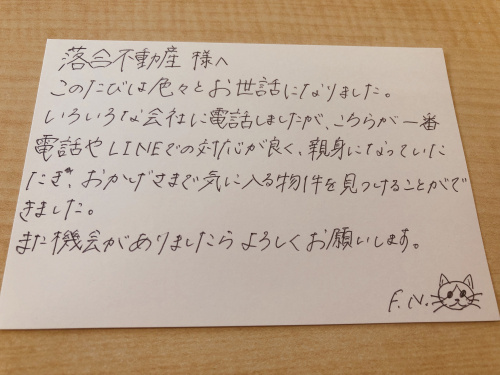 落合不動産 様へ
このたびは色々とお世話になりました。
いろいろな会社に電話しましたが、こちらが一番
電話やLINEでの対応が良く、親身になっていた
だき、おかげさまで気に入る物件を見つけることがで
きました。
また機会がありましたらよろしくお願いします。
F.N.